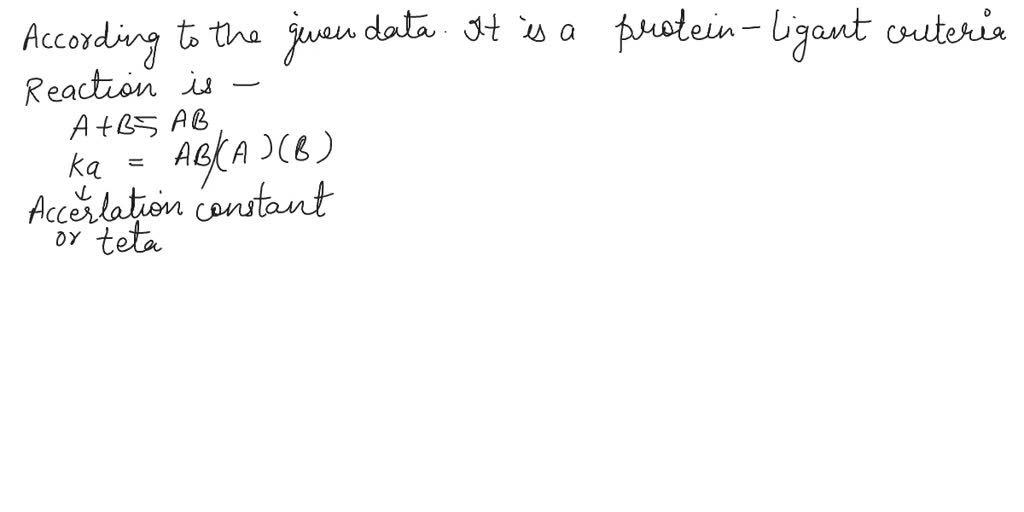 According to the given data. It is a protein - ligant criteria
Reaction is -
A + B ⇆ AB
Ka = AB/(A)(B)
↓
Accerlation constant
or teta